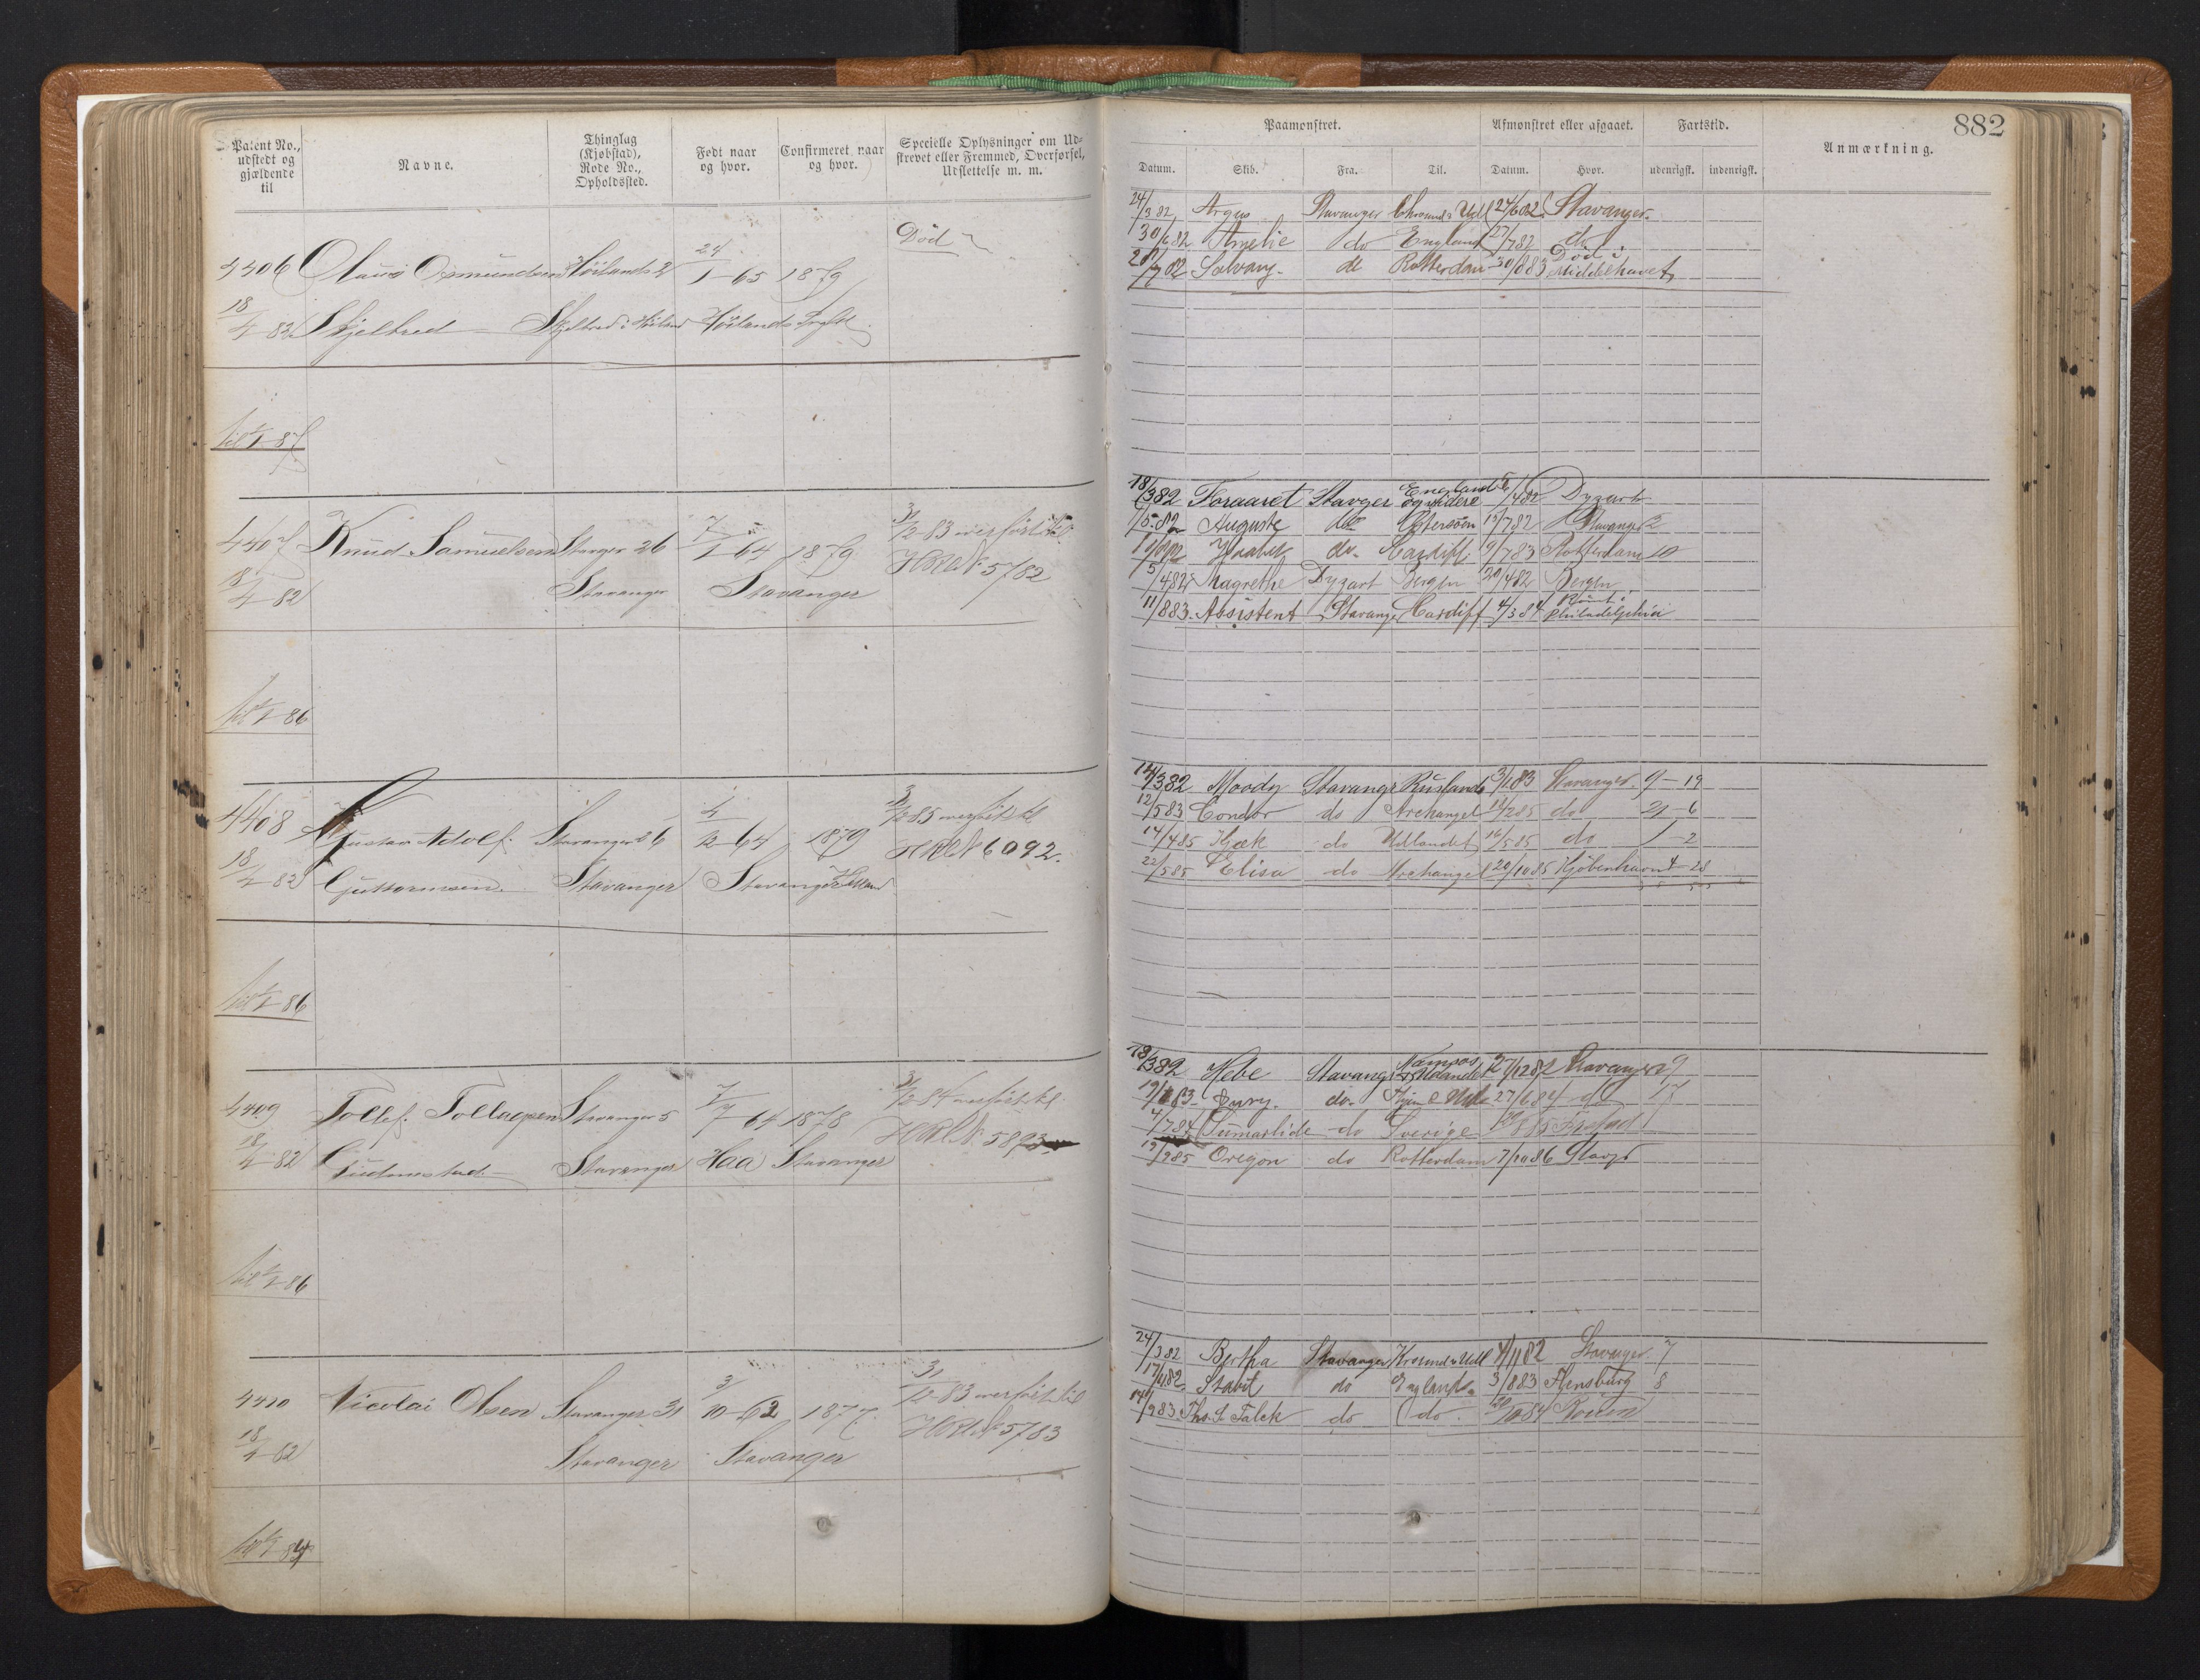 Patent No., udstedt og gjældende til
Navne.
Thinglag (Kjøbstad), Rode No., Opholdssted.
Født naar og hvor.
Confirmeret naar og hvor.
Specielle Oplysninger om Udskrevet eller Fremmed, Overførsel, Udslettelse m. m.
4406 Olaus Osmundsen Høiland 2 24/1-65 1879 Død
18/4-82 Skjeltred Skjeltred i Høiland Høilands
til 1/1 87
4407 Knud Samuelsen Stavger 26 7/1-64 1879 31/12 83 overført til
18/4-82 Stavanger Stavanger HRL No 5782
til 1/1 86
4408 Gustav Adolf Stavanger 26 4/12-64 1879 31/12 85 overført til
18/4-82 Guttormsen Stavanger Stavanger Hetland HRL No 6092.
til 1/1 86
4409 Tollef Tollagsen Stavanger 5 7/7 64 1878 31/12 84 overført til
18/4-82 Gudmestad Stavanger Haa Stavanger HRL No 5893
til 1/1 86
4410 Nicolai Olsen Stavanger 31 3/10-62 1877 31/12-83 overført til
18/4-82 Stavanger Stavanger HRL No 5783
til 1/1 84
882
Paamønstret.
Afmønstret eller afgaaet.
Fartstid.
Anmærkning.
Datum. Skib. Fra. Til. Datum. Hvor. udenrigsk. indenrigsk.
24/3 82 Argus Stavanger Chrsund & Udl 24/6 82 Stavanger
30/6 82 Amelie do England 27/7 82 do
28/7 82 Solvang do Rotterdam 30/8 83 Død i Middelhavet
18/3 82 Foraaret Stavger England og videre 5/4 82 Dysart
1/5 82 Auguste do Østersøen 15/7 82 Stavanger 2
do Cardiff 9/7 83 Rotterdam 10
5/4 82 Magrethe Dysart Bergen 20/4 82 Bergen
11/8 83 Assistent Stavanger Cardiff 4/3 84 Rømt i Philadelphia
14/3 82 Moody Stavanger Rusland 3/1 83 Stavanger 9-19
12/5 83 Condor do Archangel 14/2 85 do 21-6
14/4 85 Kjæk do Udlandet 16/5 85 do 1-2
22/5 85 Elisa do Archangel 20/10 85 Kjøbenhavn 4-28
18/3 82 Hebe Stavanger Namsos & Udlandet 27/12 82 Stavanger 9
do 27/6 84 do 17
4/7 84 Sumarlide do Sverige
19/9 85 Oregon do Rotterdam 7/10 86 Stavgr
24/3 82 Bertha Stavanger Krsund & Udl 4/11 82 Stavanger 7
17/11 82 Stavit do England 3/8 83 Flensburg 8
14/9 83 Ths. S. Falck do do 20/10 84 Rouen